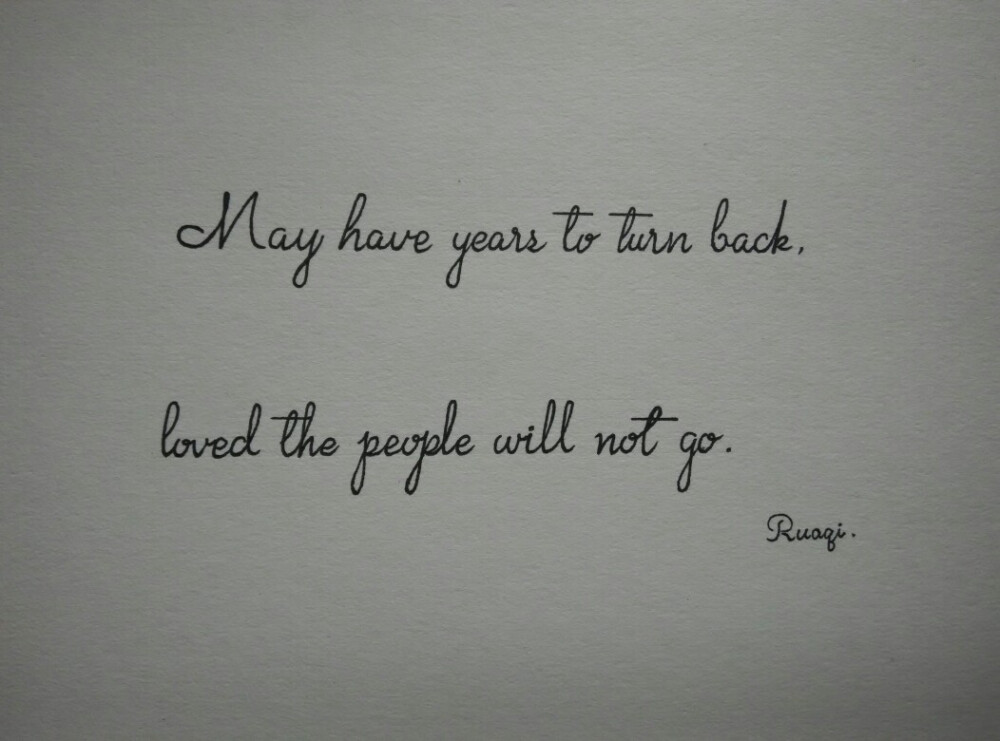 May have years to turn back,
loved the people will not go.
Ruaqi.